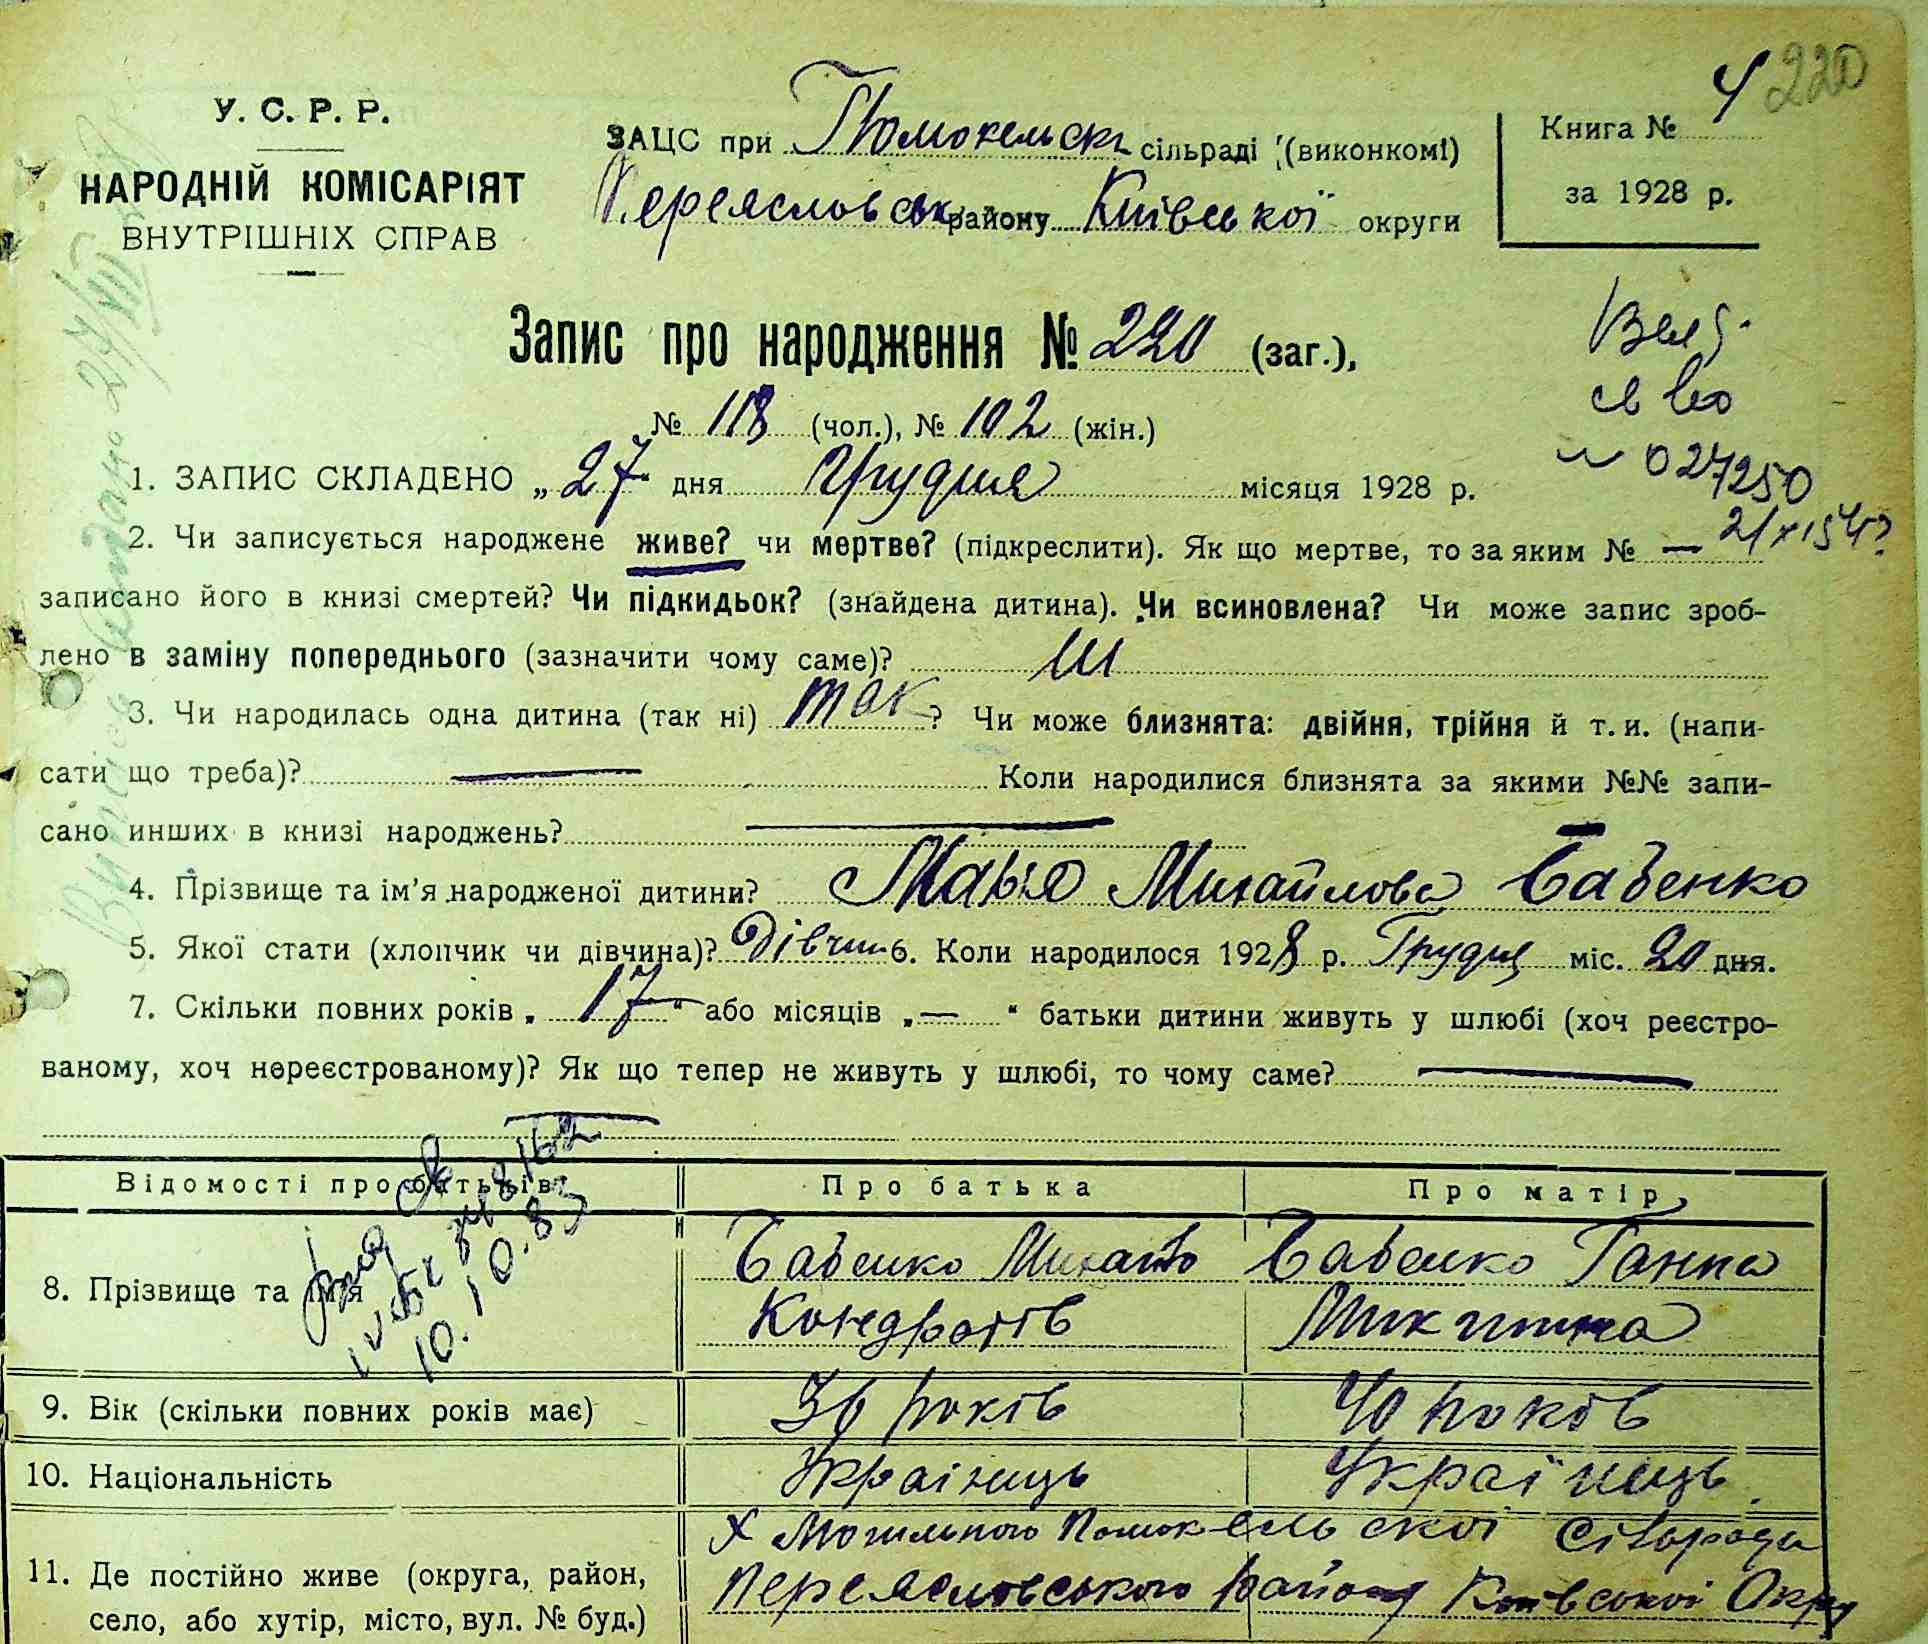 4 220
У. С. Р. Р.
НАРОДНІЙ КОМІСАРІЯТ
ВНУТРІШНІХ СПРАВ
ЗАЦС при Помокельскі сільраді (виконкомі)
Переясловськ району Київської округи
Книга №
за 1928 р.
Запис про народження № 220 (заг.),
№ 118 (чол.), № 102 (жін.)
027250
1. ЗАПИС СКЛАДЕНО „27" дня Грудня місяця 1928 р.
2. Чи записується народжене живе? чи мертве? (підкреслити). Як що мертве, то за яким № —
записано його в книзі смертей? Чи підкидьок? (знайдена дитина). Чи всиновлена? Чи може запис зроб-
лено в заміну попереднього (зазначити чому саме)?
3. Чи народилась одна дитина (так ні) так? Чи може близнята: двійня, трійня й т. и. (напи-
сати що треба)? — Коли народилися близнята за якими №№ запи-
сано инших в книзі народжень? —
4. Прізвище та ім'я народженої дитини? Марія Михайлова Бабенко
5. Якої стати (хлопчик чи дівчина)? Дівчин 6. Коли народилося 1928 р. Грудня міс. 20 дня.
7. Скільки повних років „17" або місяців „—" батьки дитини живуть у шлюбі (хоч реєстро-
ваному, хоч нереєстрованому)? Як що тепер не живуть у шлюбі, то чому саме? —
Відомості про батьків Про батька Про матір
10.10.83
8. Прізвище та ім'я Бабенко Михайло Бабенко Ганна
Кондратів Микитина
9. Вік (скільки повних років має) 36 років 40 років
10. Національність Українць Українець
11. Де постійно живе (округа, район,
село, або хутір, місто, вул. № буд.)
Х Могильного Помокельської Сільрада
Переясловського Району Київської Округ